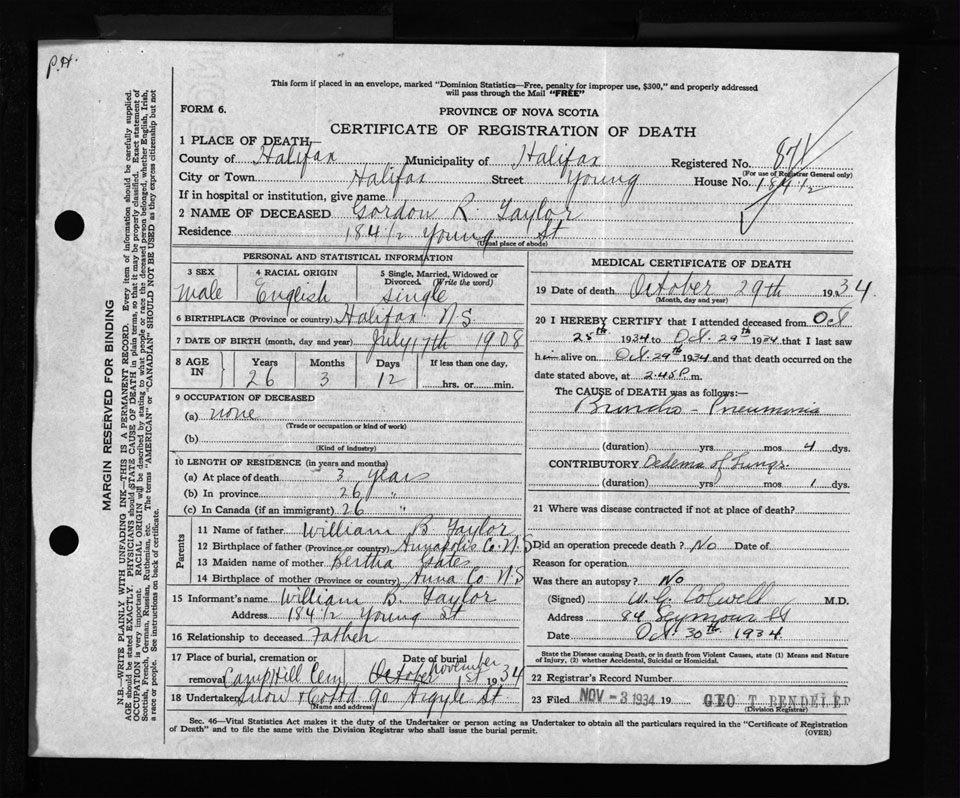 P.H.
This form if placed in an envelope, marked "Dominion Statistics—Free, penalty for improper use, $300," and properly addressed
will pass through the Mail "FREE"
FORM 6.
PROVINCE OF NOVA SCOTIA
CERTIFICATE OF REGISTRATION OF DEATH
1 PLACE OF DEATH
County of Halifax Municipality of Halifax Registered No. 871
(For use of Registrar General only)
City or Town Halifax Street Young House No. 184 1/2
If in hospital or institution, give name
2 NAME OF DECEASED Gordon R. Taylor
Residence 184 1/2 Young St
(Usual place of abode)
PERSONAL AND STATISTICAL INFORMATION
3 SEX 4 RACIAL ORIGIN 5 Single, Married, Widowed or Divorced. (Write the word)
Male English Single
6 BIRTHPLACE (Province or country) Halifax N.S
7 DATE OF BIRTH (month, day and year) July 17th 1908
8 AGE IN Years Months Days If less than one day,
26 3 12 hrs. or min.
9 OCCUPATION OF DECEASED
(a) none
(Trade or occupation or kind of work)
(b)
(Kind of industry)
10 LENGTH OF RESIDENCE (in years and months)
(a) At place of death 3 years
(b) In province 26 "
(c) In Canada (if an immigrant) 26 "
Parents
11 Name of father William B Taylor
12 Birthplace of father (Province or country) Annapolis Co. N.S
13 Maiden name of mother Bertha Gates
14 Birthplace of mother (Province or country) Anna Co N.S
15 Informant's name William B. Taylor
Address 184 1/2 Young St
16 Relationship to deceased Father
17 Place of burial, cremation or removal Camp Hill Cem Date of burial October November 1st 1934
18 Undertaker Snow & Co Ltd 90 Argyle St
(Name and address)
MEDICAL CERTIFICATE OF DEATH
19 Date of death October 29th 1934.
(Month, day and year)
20 I HEREBY CERTIFY that I attended deceased from Oct
25th 1934 to Oct. 29th 1934 that I last saw
him alive on Oct. 29th 1934 and that death occurred on the
date stated above, at 2.45 P. m.
The CAUSE OF DEATH was as follows:—
Broncho - Pneumonia
(duration) yrs. mos 4 dys.
CONTRIBUTORY Oedema of Lungs.
(duration) yrs. mos 1 dys.
21 Where was disease contracted if not at place of death?
Did an operation precede death? No Date of
Reason for operation
Was there an autopsy? No
(Signed) W. G. Colwell M.D.
Address 84 Seymour St
Date Oct 30th 1934.
State the Disease causing Death, or in death from Violent Causes, state (1) Means and Nature
of Injury, (2) whether Accidental, Suicidal or Homicidal.
22 Registrar's Record Number
23 Filed NOV - 3 1934 19 GEO T. RENDELL
(Division Registrar)
Sec. 46—Vital Statistics Act makes it the duty of the Undertaker or person acting as Undertaker to obtain all the particulars required in the "Certificate of Registration
of Death" and to file the same with the Division Registrar who shall issue the burial permit.
(OVER)
MARGIN RESERVED FOR BINDING
N.B.—WRITE PLAINLY WITH UNFADING INK—THIS IS A PERMANENT RECORD. Every item of information should be carefully supplied.
AGE should be stated EXACTLY. PHYSICIANS should STATE CAUSE OF DEATH in plain terms, so that it may be properly classified. Exact statement of
OCCUPATION is very important. RACIAL ORIGIN will be described by stating to what people or race the deceased person belonged, whether English, Irish,
Scottish, French, German, Russian, Ruthenian, etc. The terms "AMERICAN" or "CANADIAN" SHOULD NOT BE USED as they express citizenship but not
a race or people. See instructions on back of certificate.